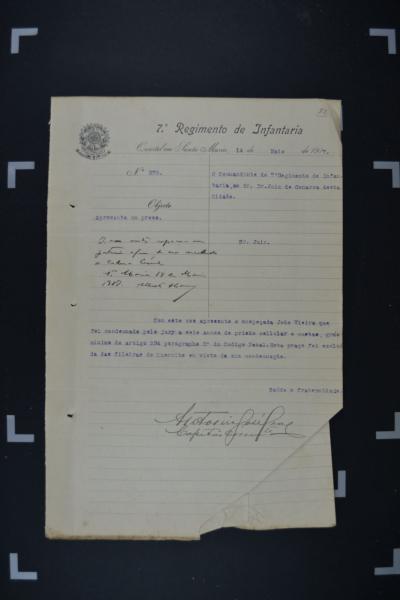 7.º Regimento de Infantaria
Quartel em Santa Maria, 14 de Maio de 191
Nº 273.
O Commandante do 7ºRegimento de Infan-
taria, ao Sr. Dr.Juiz de Comarca desta
Cidade.
Objecto
Apresenta um preso.
SR. Juiz.
Com este vos apresento o anspeçada João Vieira que
foi condemnado pelo jury a seis annos de prisão cellular e custas, gráo
minimo do Artigo 294 paragrapho 2º do Codigo Penal.Esta praça foi exclui
da das fileiras do Exercito em vista da sua condemnação.
Saúde e fraternidade.
Capitão